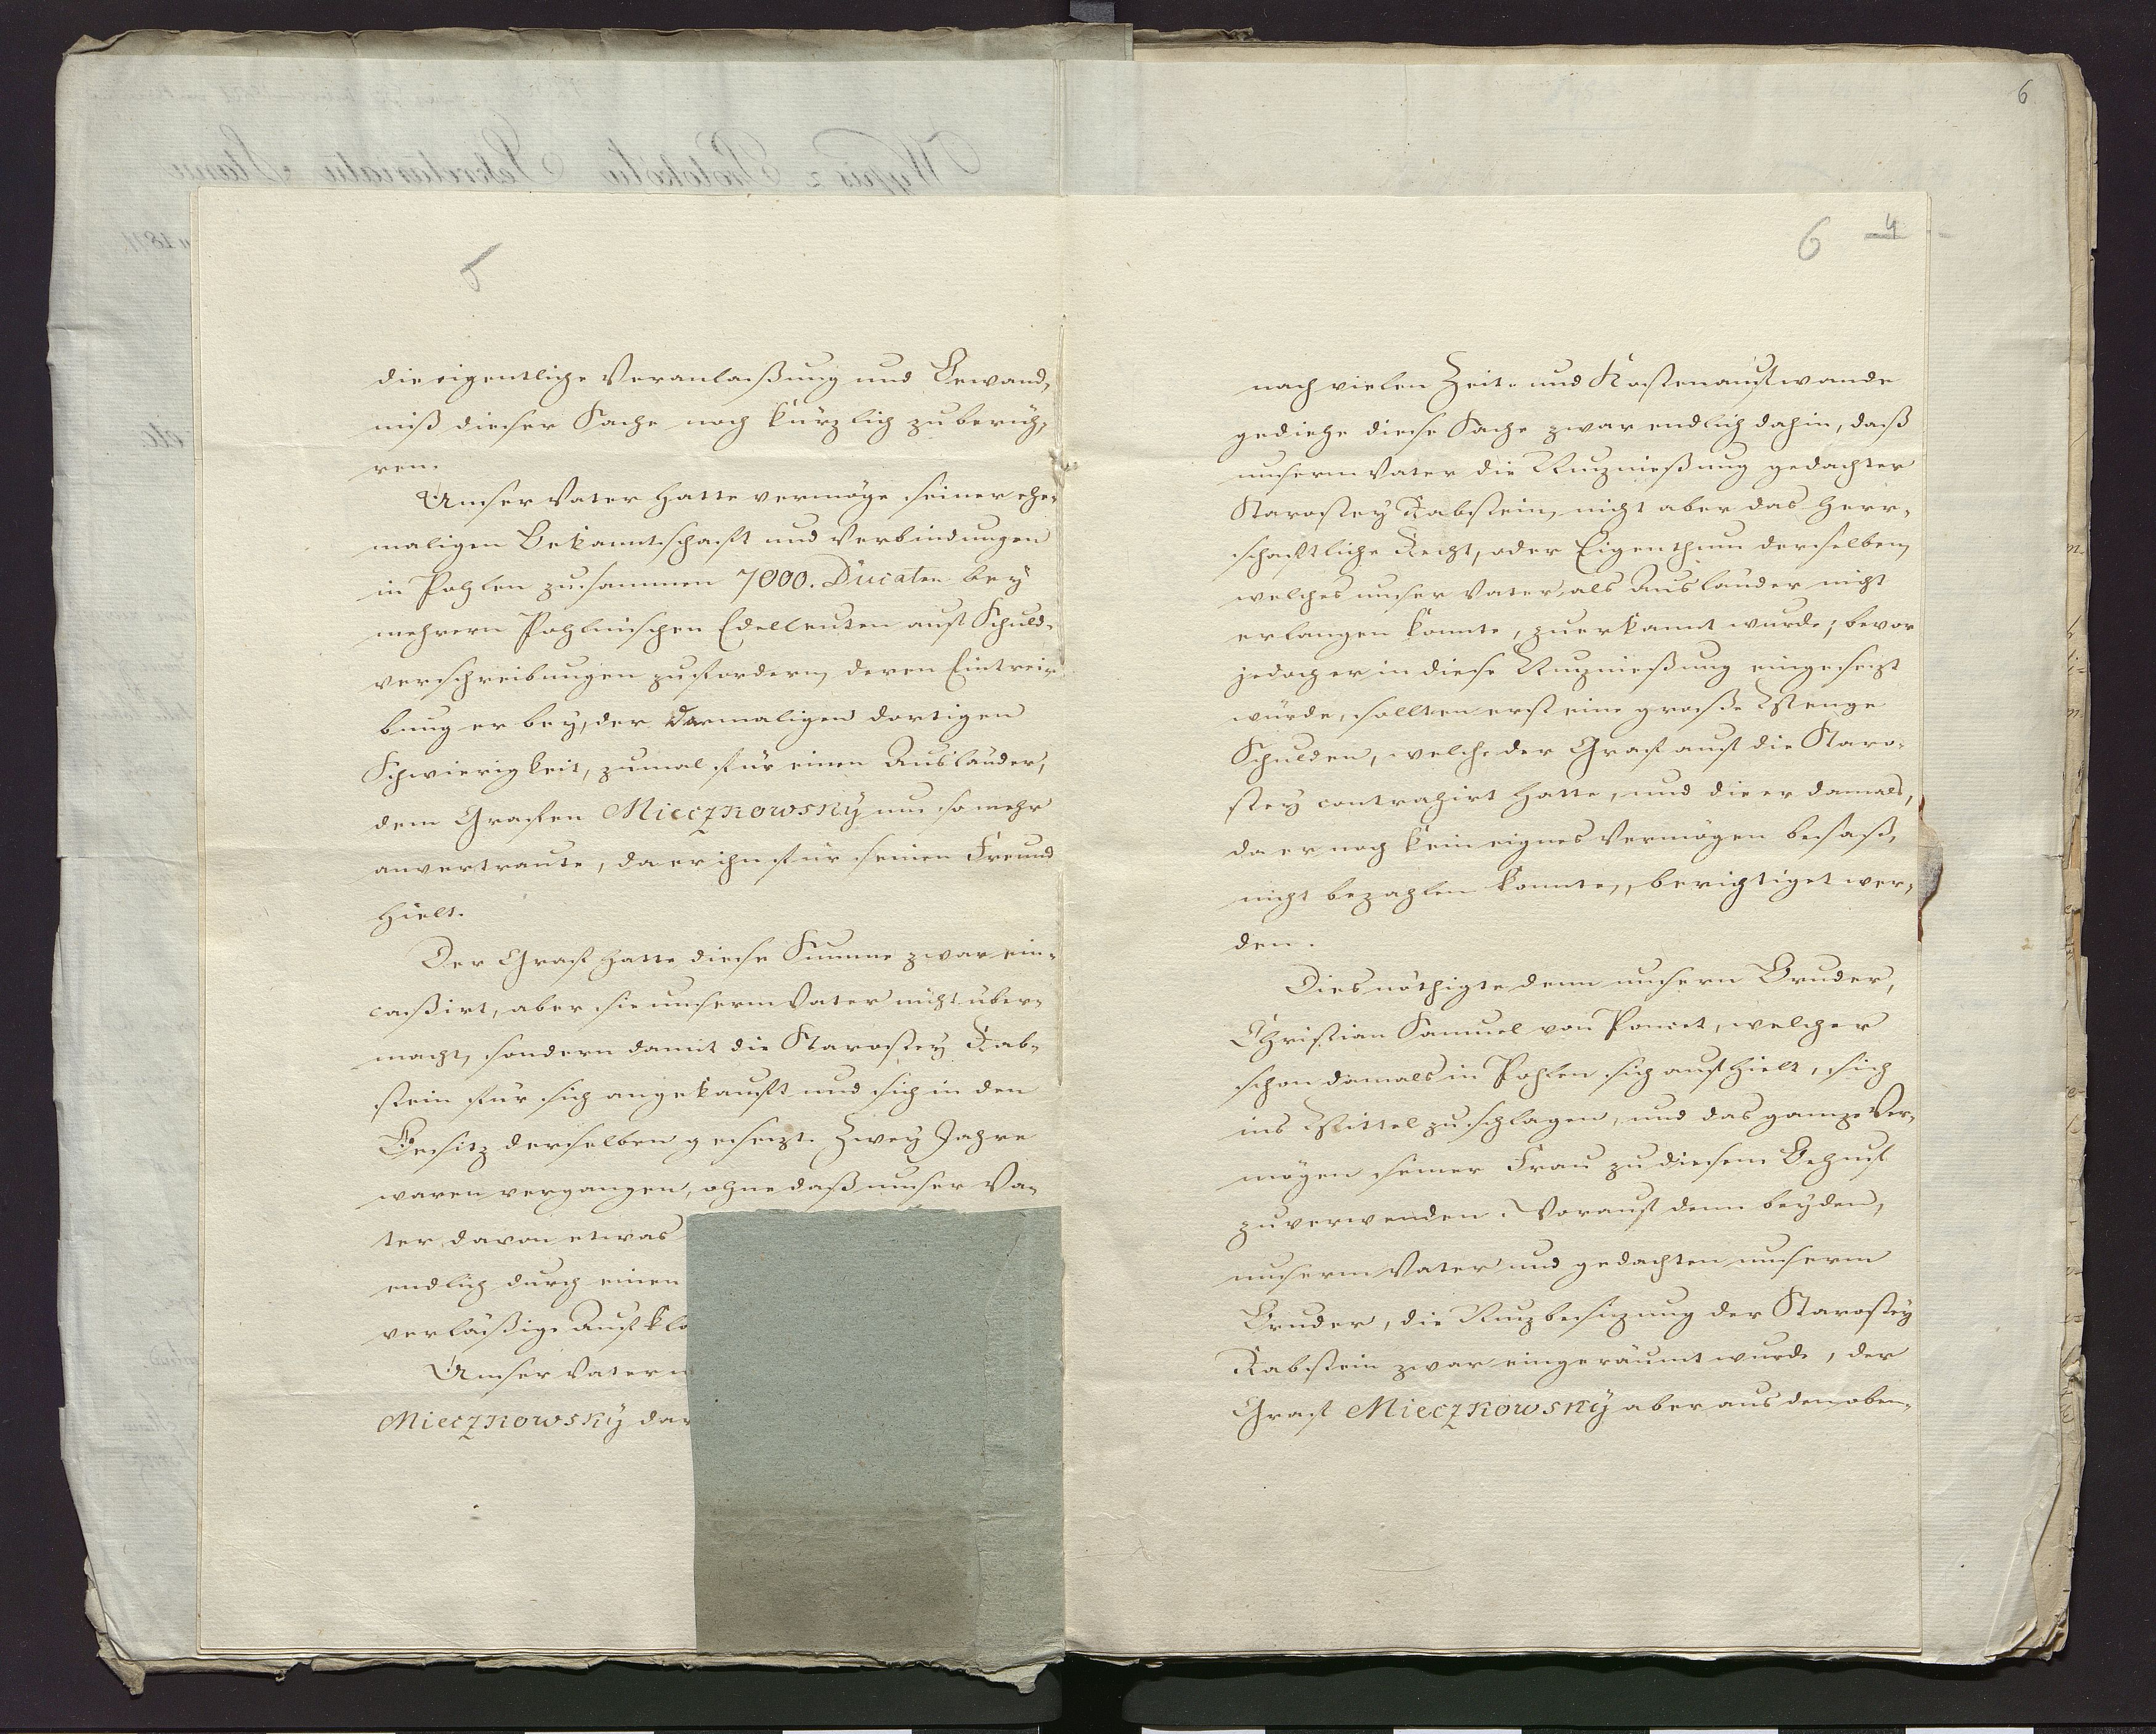 5
die eigentliche Veranlaßung und Bewand-
niß dieser Sache noch kürzlich zu berüh-
ren.
Unser Vater hatte vermöge seiner ehe-
maligen Bekanntschaft und Verbindungen
in Pohlen zusammen 7000. Ducaten bey
mehrern Pohlnischen Edelleuten auf Schuld-
verschreibungen zu fordern, deren Eintrei-
bung er bey, der darmaligen dortigen
Schwierigkeit, zumal für einen Ausländer,
dem Grafen Mieczkowsky um so mehr
anvertraute, da er ihn für seinen Freund
hielt.
Der Graf hatte diese Summe zwar ein-
caßirt, aber sie unserm Vater nicht über-
macht, sondern damit die Starostey Rab-
stein für sich angekauft und sich in den
Besitz derselben gesezt. Zwey Jahre
waren vergangen, ohne daß unser Va-
ter davon etwas
endlich durch einen
verläßige Aufklä
Unser Vater
Mieczkowsky dar
6
6 4
nach vielen Zeit- und Kostenaufwande
gediehe diese Sache zwar endlich dahin, daß
unserm Vater die Nuznießung gedachter
Starostey Rabstein, nicht aber das Herr-
schaftliche Recht, oder Eigenthum derselben,
welches unser Vater, als Ausländer nicht
erlangen konnte, zuerkannt wurde; bevor
jedoch er in diese Nuznießung eingesezt
würde, sollten erst eine große Menge
Schulden, welche der Graf auf die Staro-
stey contrahirt hatte, und die er damals,
da er noch kein eignes Vermögen besaß,
nicht bezahlen konnte, berichtiget wer-
den.
Dies nöthigte denn unsern Bruder,
Christian Samuel von Poncet, welcher
schon damals in Pohlen sich aufhielt, sich
ins Mittel zu schlagen, und das ganze Ver-
mögen seiner Frau zu diesem Behuf
zu verwenden. Worauf denn beyden,
unserm Vater und gedachten unserm
Bruder, die Nuzbesizung der Starostey
Rabstein zwar eingeräumt wurde, der
Graf Mieczkowsky aber aus den oben-